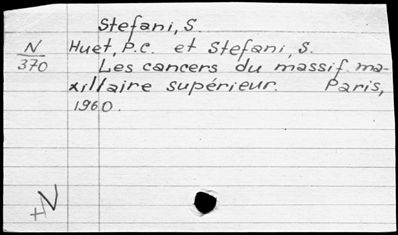 Stefani, S.
N
370
Huet, P.C. et Stefani, S.
Les cancers du massif ma-
xillaire supérieur. Paris,
1960.
+N